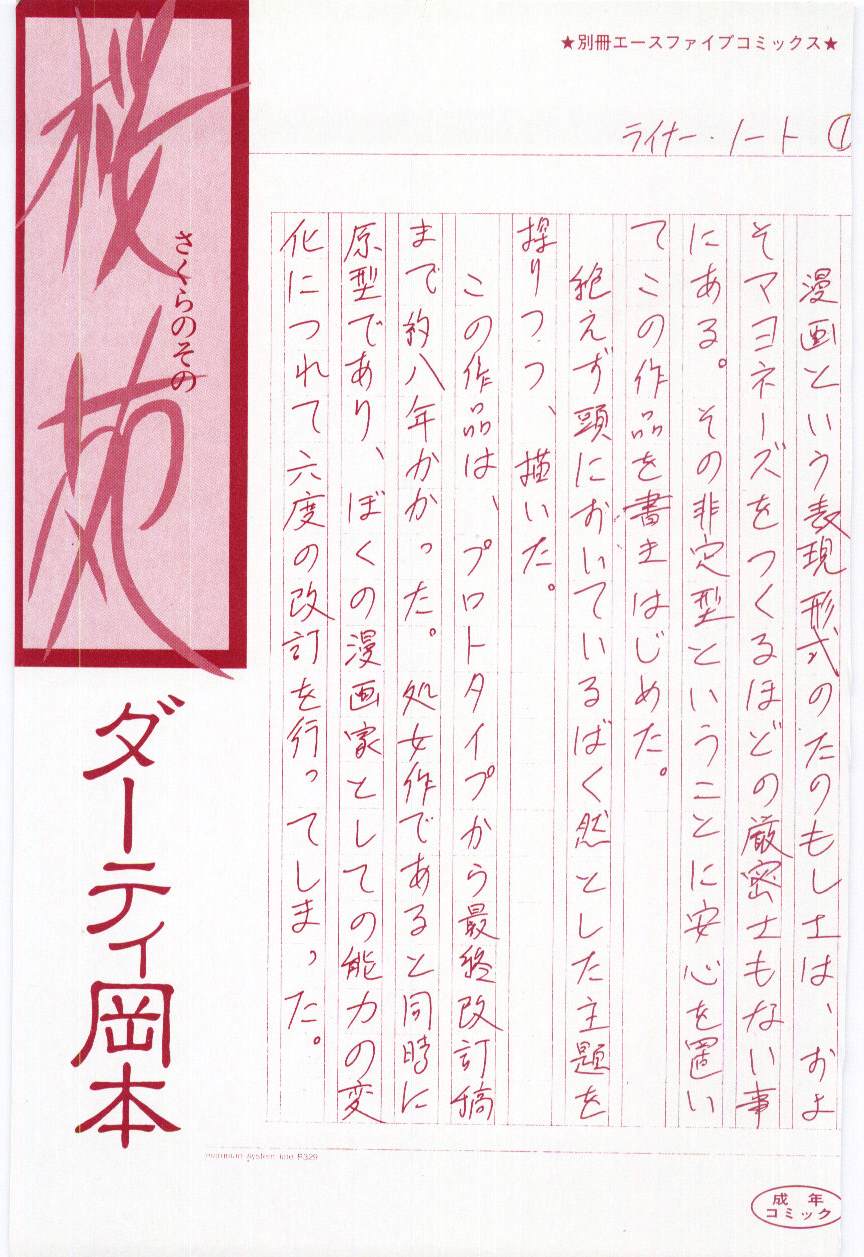 ★別冊エースファイブコミックス★
ライナー・ノート ①
漫画という表現形式のたのもしさは、およ
そマヨネーズをつくるほどの厳密さもない事
にある。その非定型ということに安心を置い
てこの作品を書きはじめた。
絶えず頭においているばく然とした主題を
探りつつ、描いた。
この作品は、プロトタイプから最終改訂稿
まで約八年かかった。処女作であると同時に
原型であり、ぼくの漫画家としての能力の変
化につれて六度の改訂を行ってしまった。
桜苑
さくらのその
ダーティ岡本
system P329
成年
コミック